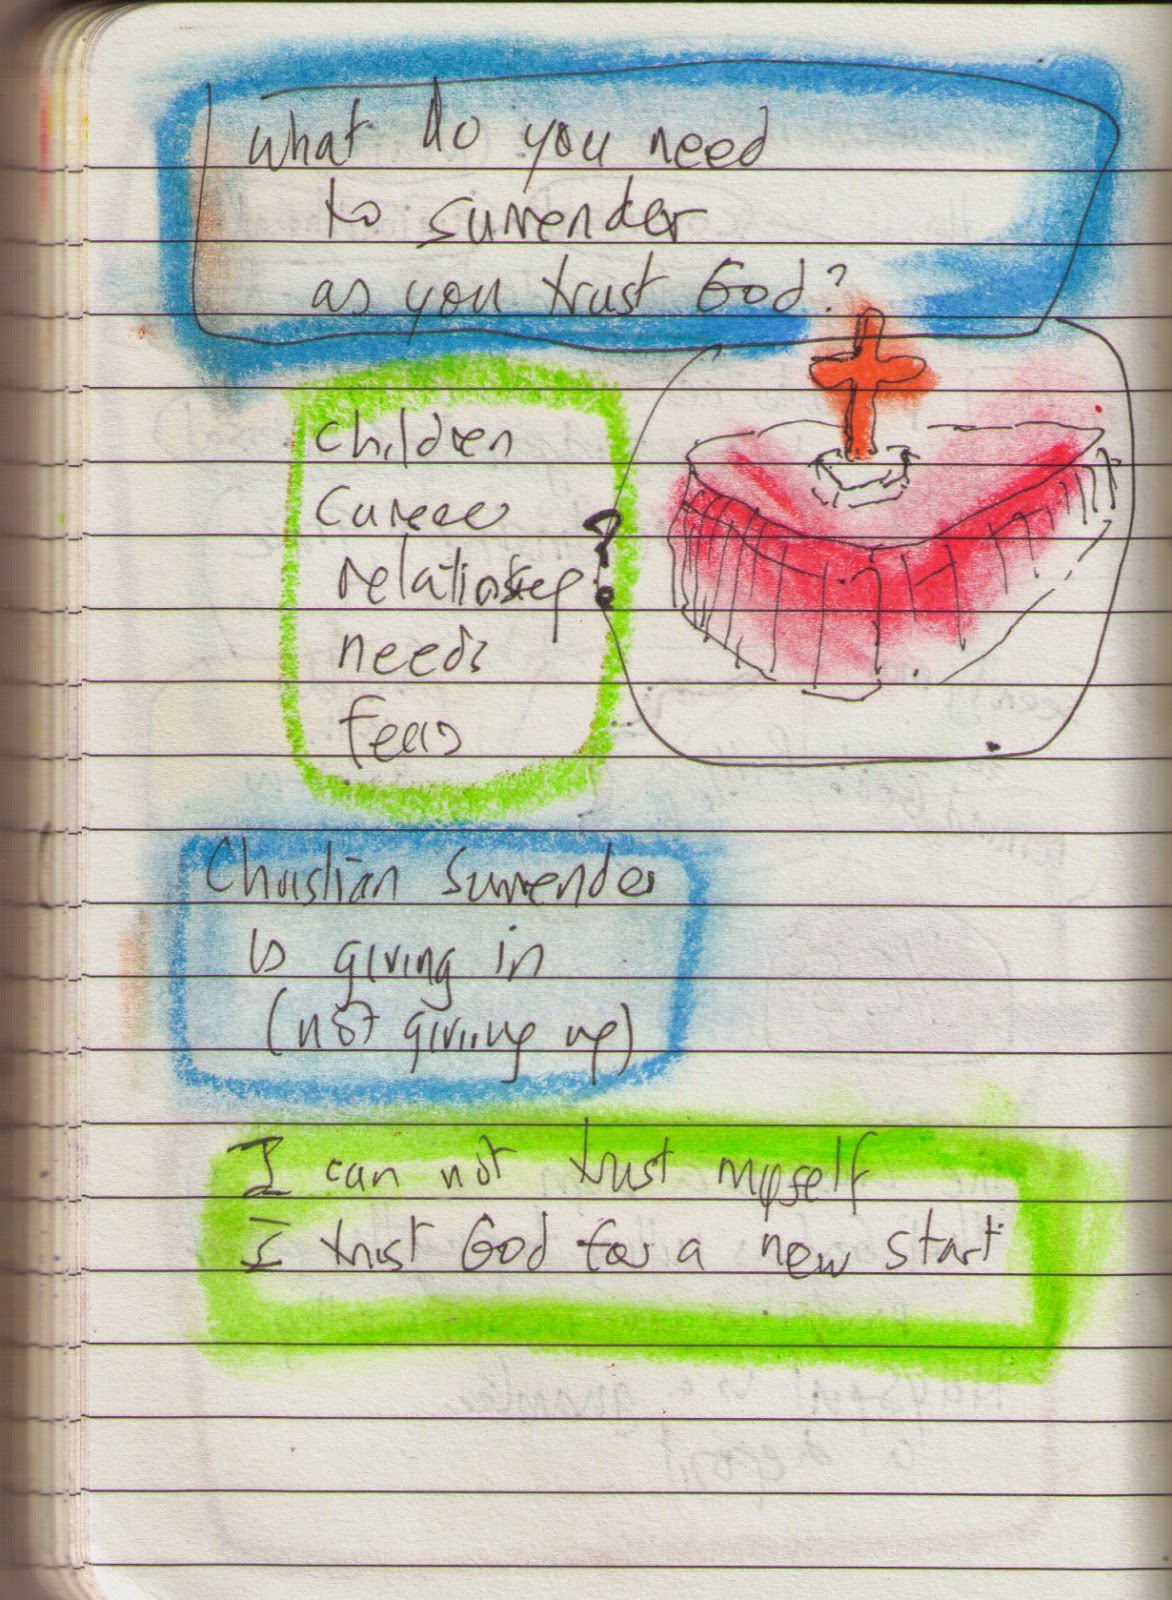 What do you need
to surrender
as you trust God?
children
career
relationship
needs
fears
?
Christian Surrender
is giving in
(not giving up)
I can not trust myself
I trust God for a new start